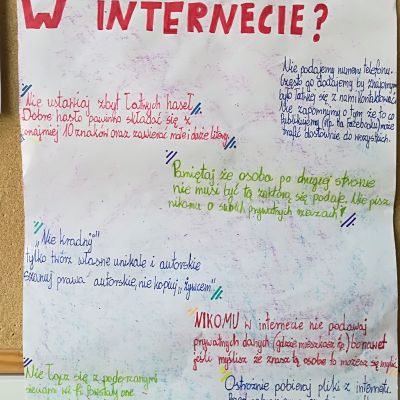 W INTERNECIE?
Nie podajemy numeru telefonu.
Często go dodajemy by znajomym
było łatwiej się z nami kontaktować.
Nie zapomnijmy o tym że to co
publikujemy (np. na facebooku) może
trafić dosłownie do wszystkich.
Nie ustawiaj zbyt łatwych haseł.
Dobre hasło powinno składać się z
conajmniej 10 znaków oraz zawierać małe i duże litery.
Pamiętaj że osoba po drugiej stronie
nie musi być tą za którą się podaje. Nie pisz
nikomu o swoich prywatnych rzeczach!
"Nie kradnij"
tylko twórz własne unikalne i autorskie
szanuj prawa autorskie, nie kopiuj "żywcem"
NIKOMU w internecie nie podawaj
prywatnych danych (gdzie mieszkasz itp.) bo nawet
jeśli myślisz że znasz tą osobę to możesz się mylić.
Nie łącz się z podejrzanymi
sieciami wi-fi. Powstały one
Ostrożnie pobieraj pliki z internetu.